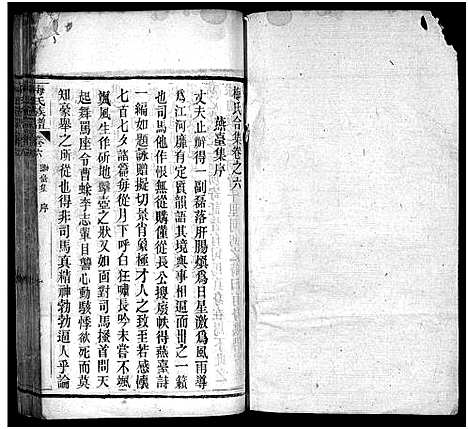 梅氏合集卷之六
燕臺集序
丈夫止辦得一副磊落肝腸熾為日星激為風雨導
為江河靡有定質韻語其境與事相逼而出之一籟
也司馬他作恨無從購僅從長公搜扇帙得燕臺集
一編如題詠贈擬切景肖象極才人之致至若感懷
七百七夕諸篇每從月下呼白狂嘯長吟未嘗不颯
颯風生作斫地擊壺之狀又如面對司馬掻首問天
起舞罵座令曹蜍李志輩目瞢心動駭悸欲死而莫
知豪舉之所從也得非司馬真精神勃勃逼人乎論
梅氏族譜
卷六
燕臺集 序